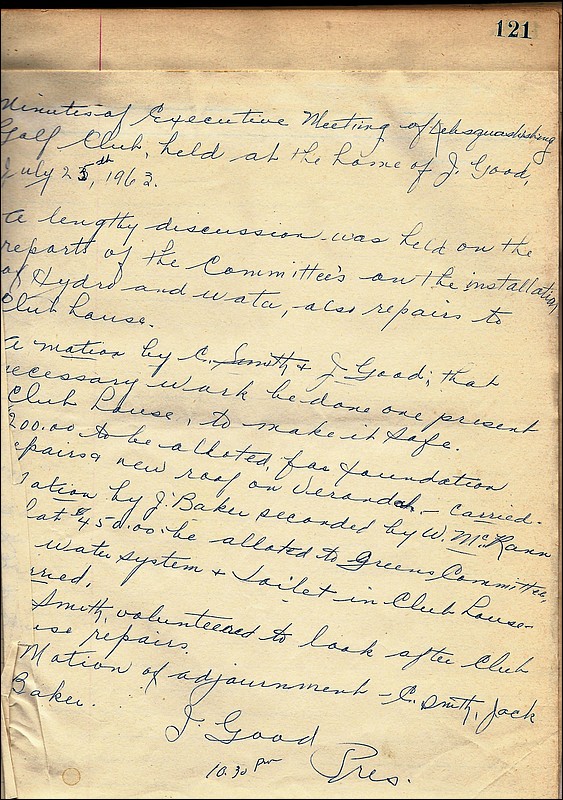 121
Minutes of Executive Meeting of
Golf Club, held at the home of J. Good,
July 25th, 1963.
A lengthy discussion was held on the
reports of the Committee's on the installation
of Hydro and water, also repairs to
Club house.
A motion by C. Smith & J. Good; that
ecessary work be done one present
Club house, to make it safe.
$200.00 to be alloted, for foundation
epairs & new roof on Verandah - carried.
lotion by J. Baker seconded by W. McKann
hat $450.00 be alloted to Greens Committee,
water system & toilet in Club house -
rried.
Smith, volunteered to look after Club
use repairs.
Motion of adjournment - C. Smith, Jack
Baker.
J. Good
Pres.
10.30 pm